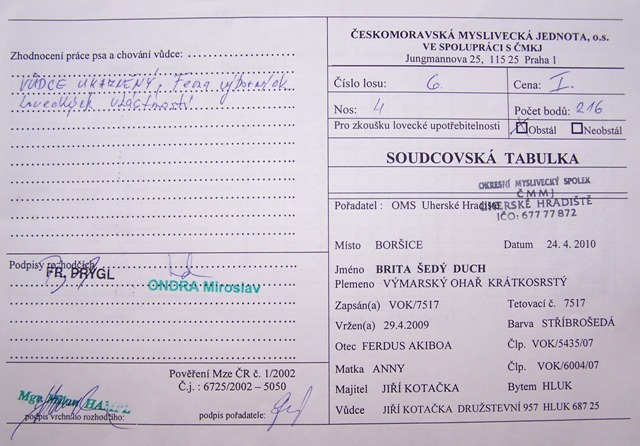 Zhodnocení práce psa a chování vůdce:
VŮDCE UKÁZNĚNÝ, Fena výborných
loveckých vlastností
Podpisy rozhodčích
FR. PRYGL
ONDRA Miroslav
Pověření Mze ČR č. 1/2002
Č.j. : 6725/2002 – 5050
Mgr. Milan
podpis vrchního rozhodčího:
podpis pořadatele:
ČESKOMORAVSKÁ MYSLIVECKÁ JEDNOTA, o.s.
VE SPOLUPRÁCI S ČMKJ
Jungmannova 25, 115 25 Praha 1
Číslo losu: 6. Cena: I.
Nos: 4 Počet bodů: 216
Pro zkoušku lovecké upotřebitelnosti Obstál Neobstál
SOUDCOVSKÁ TABULKA
OKRESNÍ MYSLIVECKÝ SPOLEK
ČMMJ
UHERSKÉ HRADIŠTĚ
IČO: 67777872
Pořadatel : OMS Uherské Hradiště
Místo BORŠICE Datum 24. 4. 2010
Jméno BRITA ŠEDÝ DUCH
Plemeno VÝMARSKÝ OHAŘ KRÁTKOSRSTÝ
Zapsán(a) VOK/7517 Tetovací č. 7517
Vržen(a) 29.4.2009 Barva STŘÍBROŠEDÁ
Otec FERDUS AKIBOA Člp. VOK/5435/07
Matka ANNY Člp. VOK/6004/07
Majitel JIŘÍ KOTAČKA Bytem HLUK
Vůdce JIŘÍ KOTAČKA DRUŽSTEVNÍ 957 HLUK 687 25